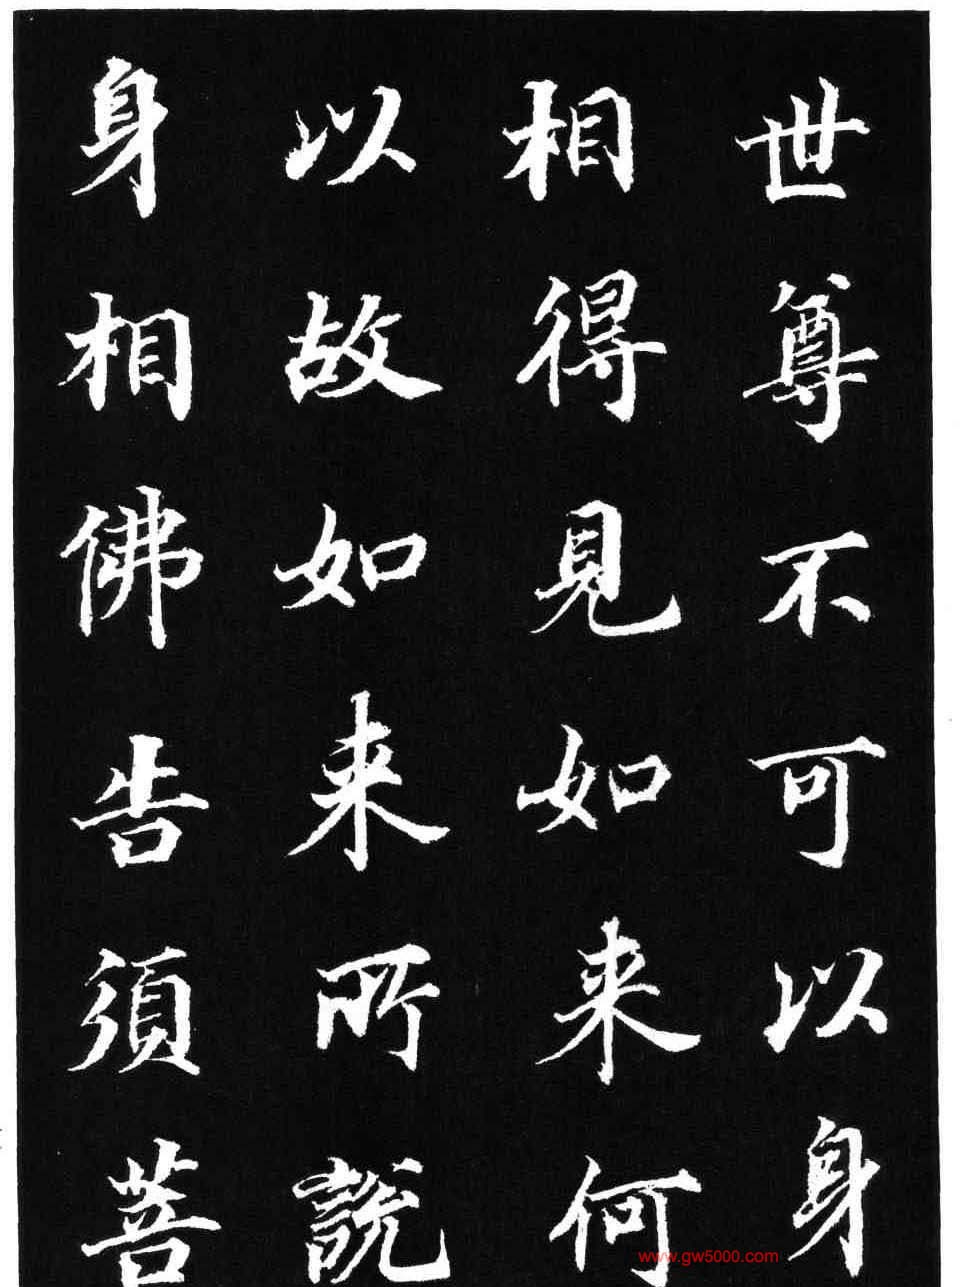 世尊不可以身
相得見如来何
以故如来所說
身相佛告須菩
www.gw5000.com